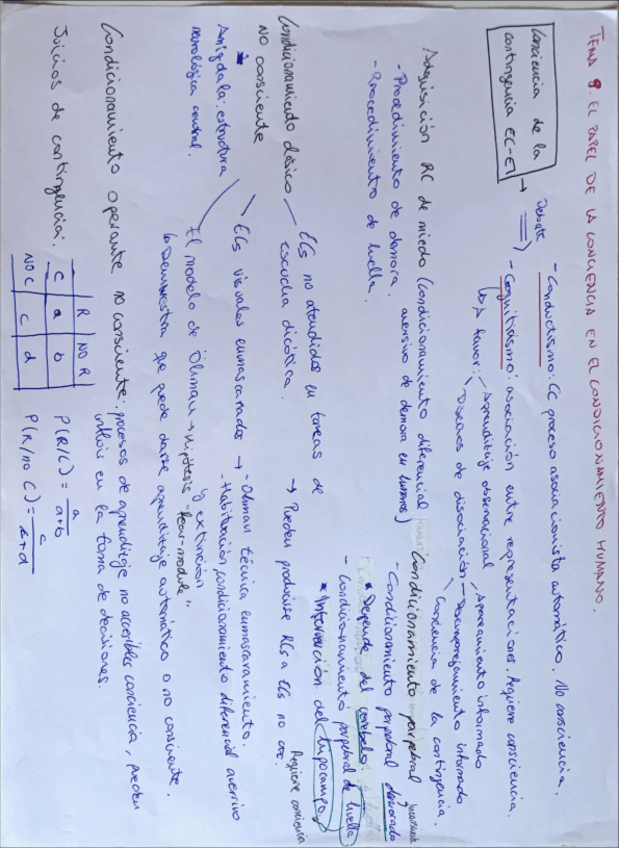 TEMA 9. EL PAPEL DE LA CONCIENCIA EN EL CONDICIONAMIENTO HUMANO.
Conciencia de la contingencia EC-EI → Debate
- Conductismo: CC proceso asociacionista automático. No consciencia.
- Cognitivismo: asociación entre representaciones. Requiere consciencia.
A favor:
Aprendizaje observacional
Diseños de disociación
- Apareamiento informado
- Desemparejamiento informado
Consciencia de la contingencia.
Adquisición RC de miedo (condicionamiento diferencial aversivo de demora en humanos)
- Procedimiento de demora.
- Procedimiento de huella.
Condicionamiento parpebral
- Condicionamiento parpebral demorado
* Depende del cerebelo.
- Condicionamiento parpebral de huella
* Intervención del hipocampo
Requiere consciencia
Condicionamiento clásico no consciente
ECs no atendidos en tareas de escucha dicótica. → Pueden producirse RCs a ECs no
ECs visuales enmascarados → - Öhman técnica enmascaramiento.
- Habituación, condicionamiento diferencial aversivo y extinción
El modelo de Öhman → Hipótesis "fear-module"
↳ Demuestra que puede darse aprendizaje automático o no consciente.
* Amigdala: estructura neurológica central.
Condicionamiento operante no consciente: procesos de aprendizaje no accesibles conciencia, pueden influir en la toma de decisiones.
Juicios de contingencia:
R NO R
C a b
NO C c d
P(R/C) = a / a+b
P(R/no C) = c / c+d